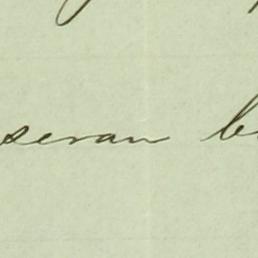 seran b